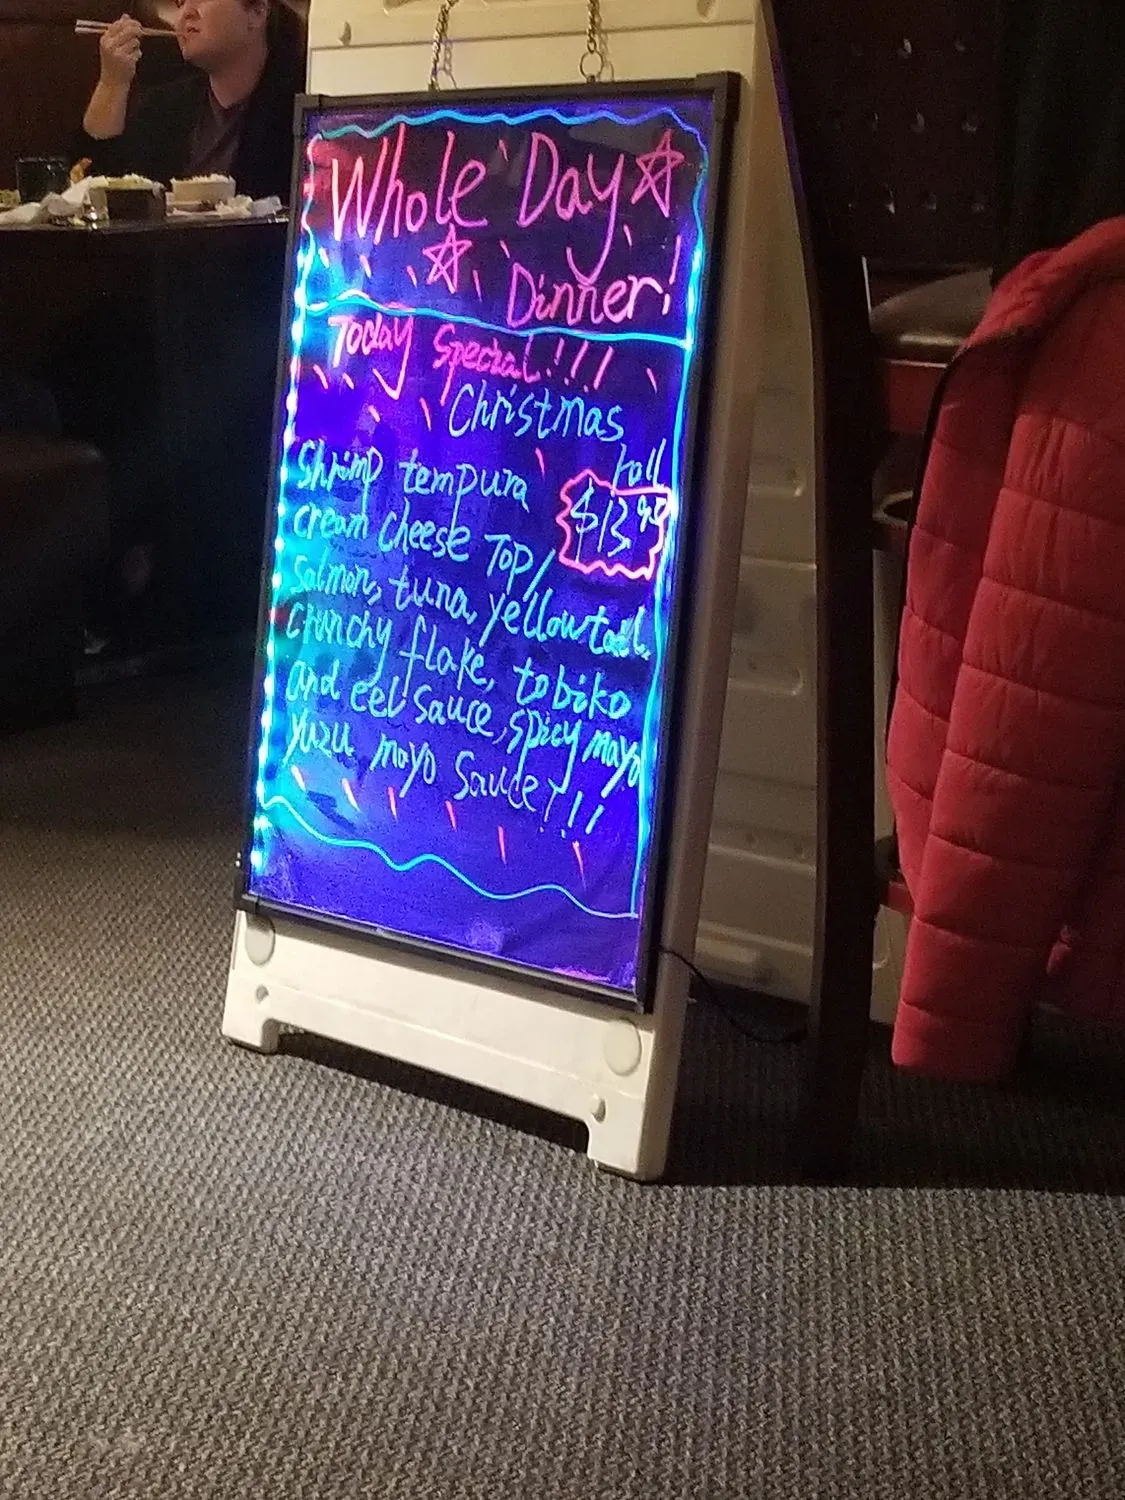 Whole Day
Dinner!
Today Special!!!
Christmas
roll
Shrimp tempura
$13.95
cream cheese Top/
Salmon, tuna, yellowtail,
crunchy flake, tobiko
and eel sauce, spicy mayo
yuzu mayo sauce!!!